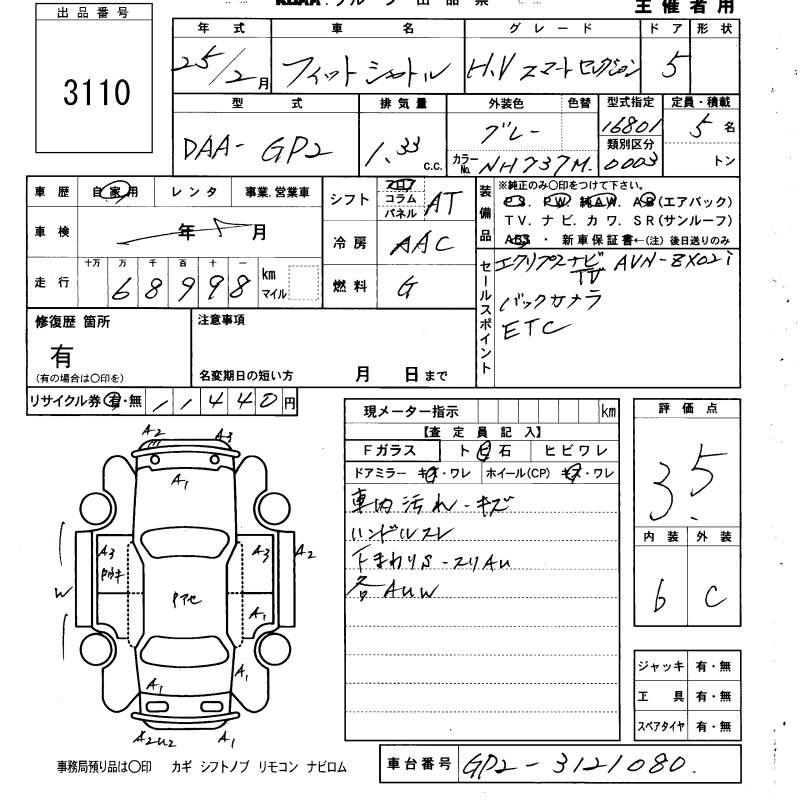 出品番号
3110
主催者用
年式 車名 グレード ドア 形状
25/2月 フィットシャトル H.V スマートセレクション 5
型式 排気量 外装色 色替 型式指定 定員・積載
DAA-GP2 1.33 c.c. グレー 16801 5名
カラーNo. NH737M. 類別区分 0003 トン
車歴 自家用 レンタ 事業.営業車
車検 年 月
走行 十万 万 千 百 十 一
68998 km マイル
シフト フロア コラム パネル AT
冷房 AAC
燃料 G
装備品
※純正のみ〇印をつけて下さい。
PS. PW. 純AW. AB(エアバック)
TV. ナビ. カワ. SR(サンルーフ)
ABS ・ 新車保証書←(注) 後日送りのみ
セールスポイント
エクリプスナビ AVN-ZX02i
TV
バックカメラ
ETC
修復歴 箇所
有
(有の場合は〇印を)
注意事項
名変期日の短い方 月 日まで
リサイクル券 有・無 11440円
現メーター指示 km
【査定員記入】
Fガラス ト 石 ヒビワレ
ドアミラー キズ・ワレ ホイール(CP) キズ・ワレ
車内汚れ・キズ
ハンドルスレ
下まわりS・スリAu
各AuW
評価点
3.5
内装 外装
6 C
A2 A3
A1
A3 A3 A2
W
A1
A1 A1
A2U2 A1
ジャッキ 有・無
工具 有・無
スペアタイヤ 有・無
事務局預り品は〇印 カギ シフトノブ リモコン ナビロム
車台番号 GP2-3121080.